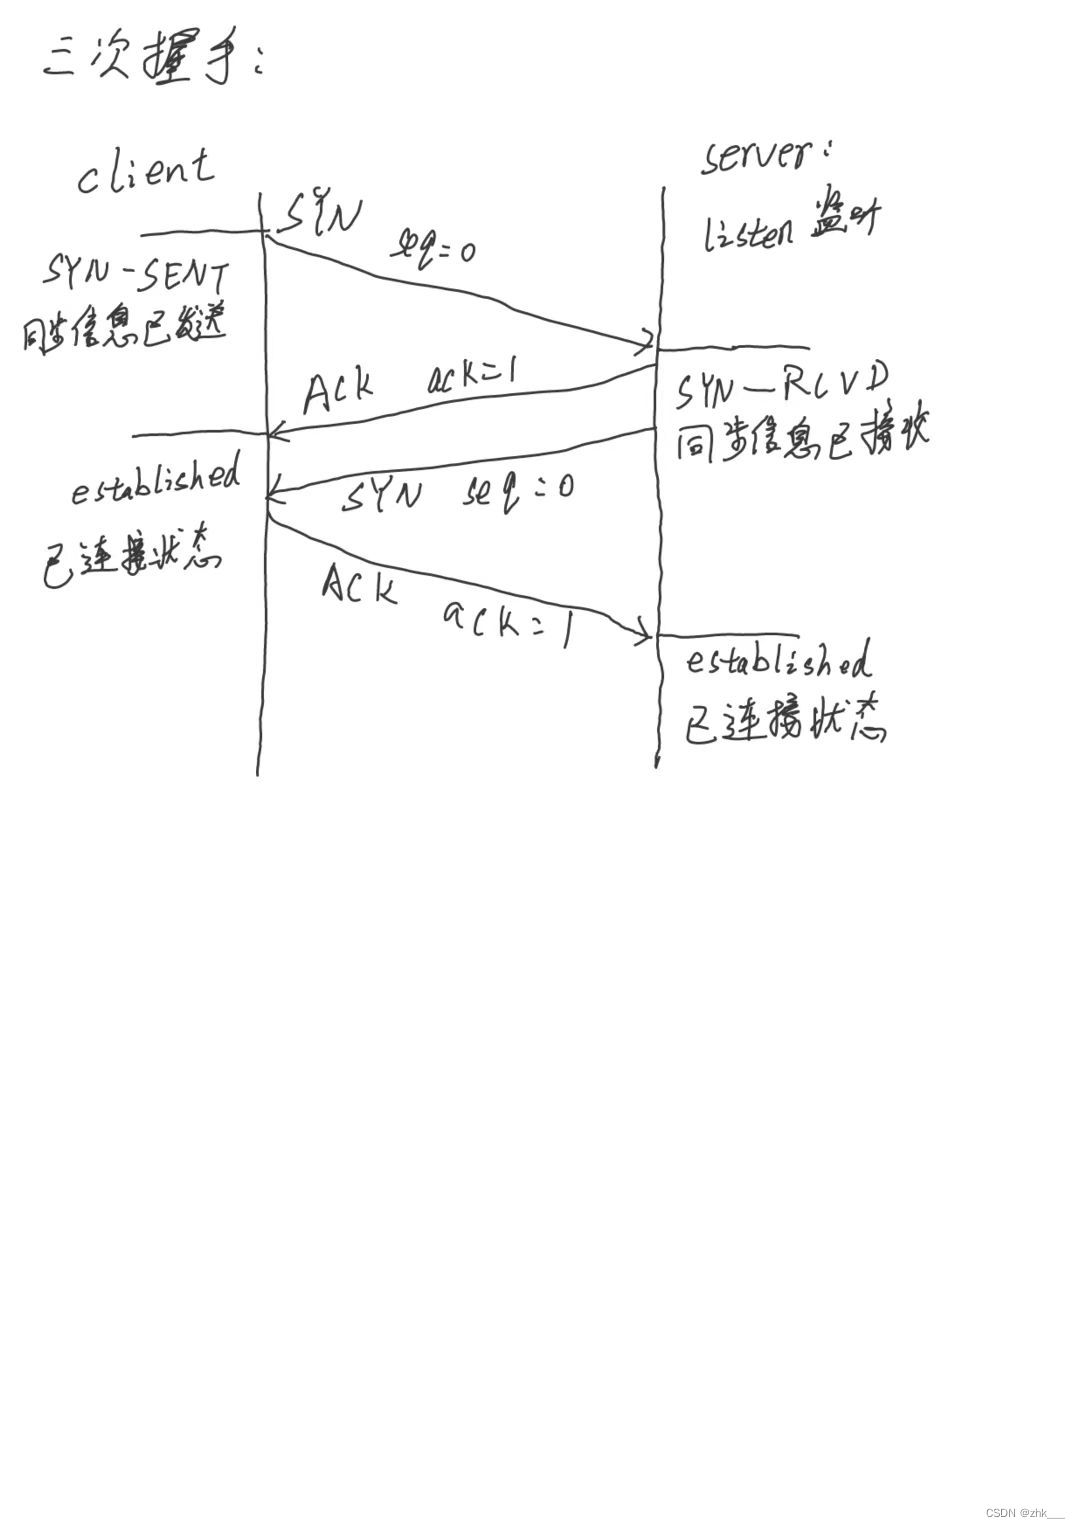 三次握手:
client
server:
listen 监听
SYN
seq=0
SYN-SENT
同步信息已发送
ACK ack=1
SYN-RCVD
同步信息已接收
established
已连接状态
SYN seq=0
ACK ack=1
established
已连接状态
CSDN @zhk___